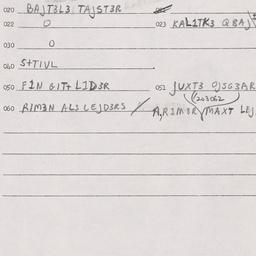 020 BAJT3L3 TAJST3R
022 0 023 KAL1TK3 QBAJ
030 0
040 S+TIVL
050 F1N GIT+ L1D3R 051 JUXT3 OJSG3AR
(203062)
060 R1M3N ALS LEJD3RS / A,R1M3R MAXT LEJ